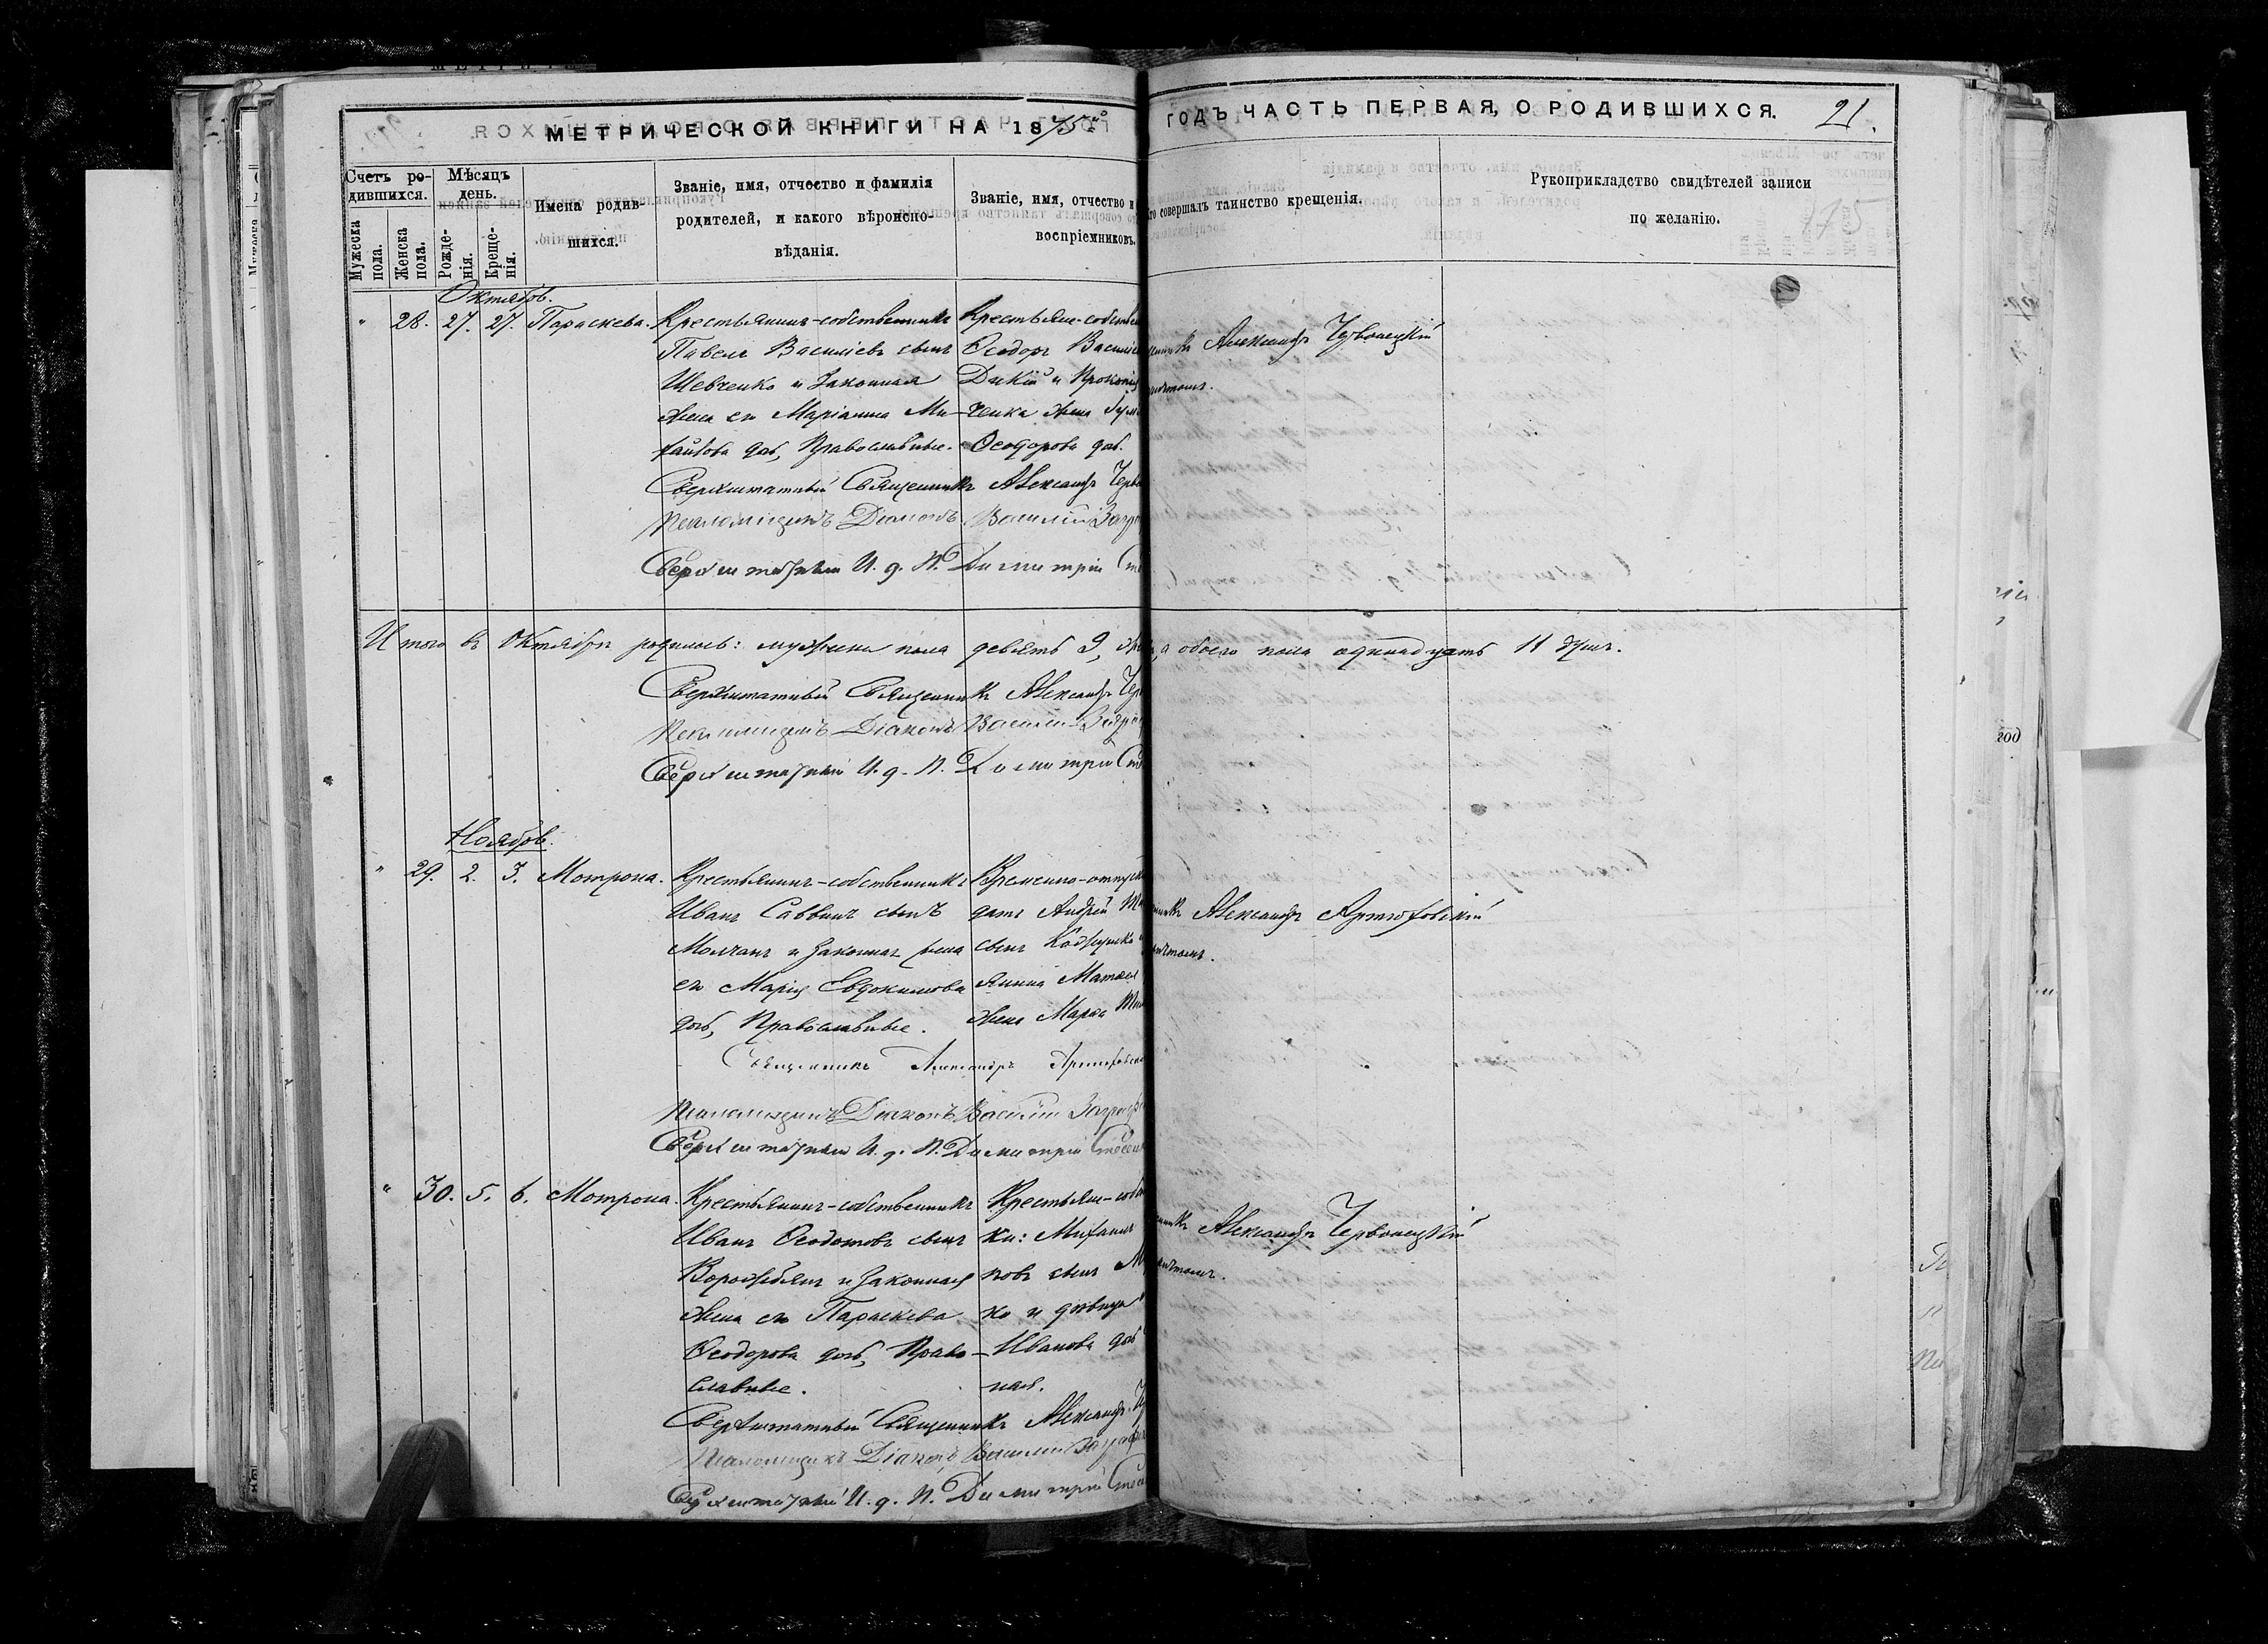 МЕТРИЧЕСКОЙ КНИГИ НА 1875й
ГОДЪ ЧАСТЬ ПЕРВАЯ, О РОДИВШИХСЯ.
21.
Счетъ родившихся.
Мужеска пола.
Женска пола.
Мѣсяцъ день.
Рожденія.
Крещенія.
Имена родившихся.
Званіе, имя, отчество и фамилія
родителей, и какого вѣроиспо-
вѣданія.
Званіе, имя, отчество и
воспріемниковъ.
совершалъ таинство крещенія.
Рукоприкладство свидѣтелей записи
по желанію.
175
Октябрь.
" 28. 27. 27. Параскева.
Крестьянинъ-собственникъ
Павелъ Василіевъ сынъ
Шевченко и законная
жена его Маріанна Ми-
хайлова дочь, Православные.
Крестьяне-собствен
Ѳеодоръ Василіе
Дикій и Прокопія
ченка жена
Ѳеодорова дочь.
Александръ Червонецкій
Сверхштатный Священникъ Александръ Черво
Псаломщикъ Діаконъ Василій Загро
Сверхштатный И. д. П. Димитрій Сте
Итого въ Октябрѣ родилось: мужеска пола девять 9, же
а обоего пола одинадцать 11 душъ.
Сверхштатный Священникъ Александръ Чер
Псаломщикъ Діаконъ Василій Загро
Сверхштатный И. д. П. Димитрій Сте
Ноябрь.
" 29. 2. 3. Мотрона.
Крестьянинъ-собственникъ
Иванъ Саввинъ сынъ
Молчанъ и законная жена
его Марія Евдокимова
дочь, Православные.
Временно-отпуск
датъ Андрей
сынъ
янина Матѳея
жена Марѳа
Александръ Артюховскій
Священникъ Александръ Артюховскі
Псаломщикъ Діаконъ Василій Загро
Сверхштатный И. д. П. Димитрій Сте
" 30. 5. 6. Мотрона.
Крестьянинъ-собственникъ
Иванъ Ѳеодотовъ сынъ
Ворожбянъ и законная
жена его Параскева
Ѳеодорова дочь, Право-
славные.
Крестьяне-собст
ки: Михаилъ
повъ сынъ
ко и дѣвица
Иванова дочь
ная.
Александръ Червонецкій
Сверхштатный Священникъ Александръ Ч
Псаломщикъ Діаконъ Василій Загро
Сверхштатный И. д. П. Димитрій Сте